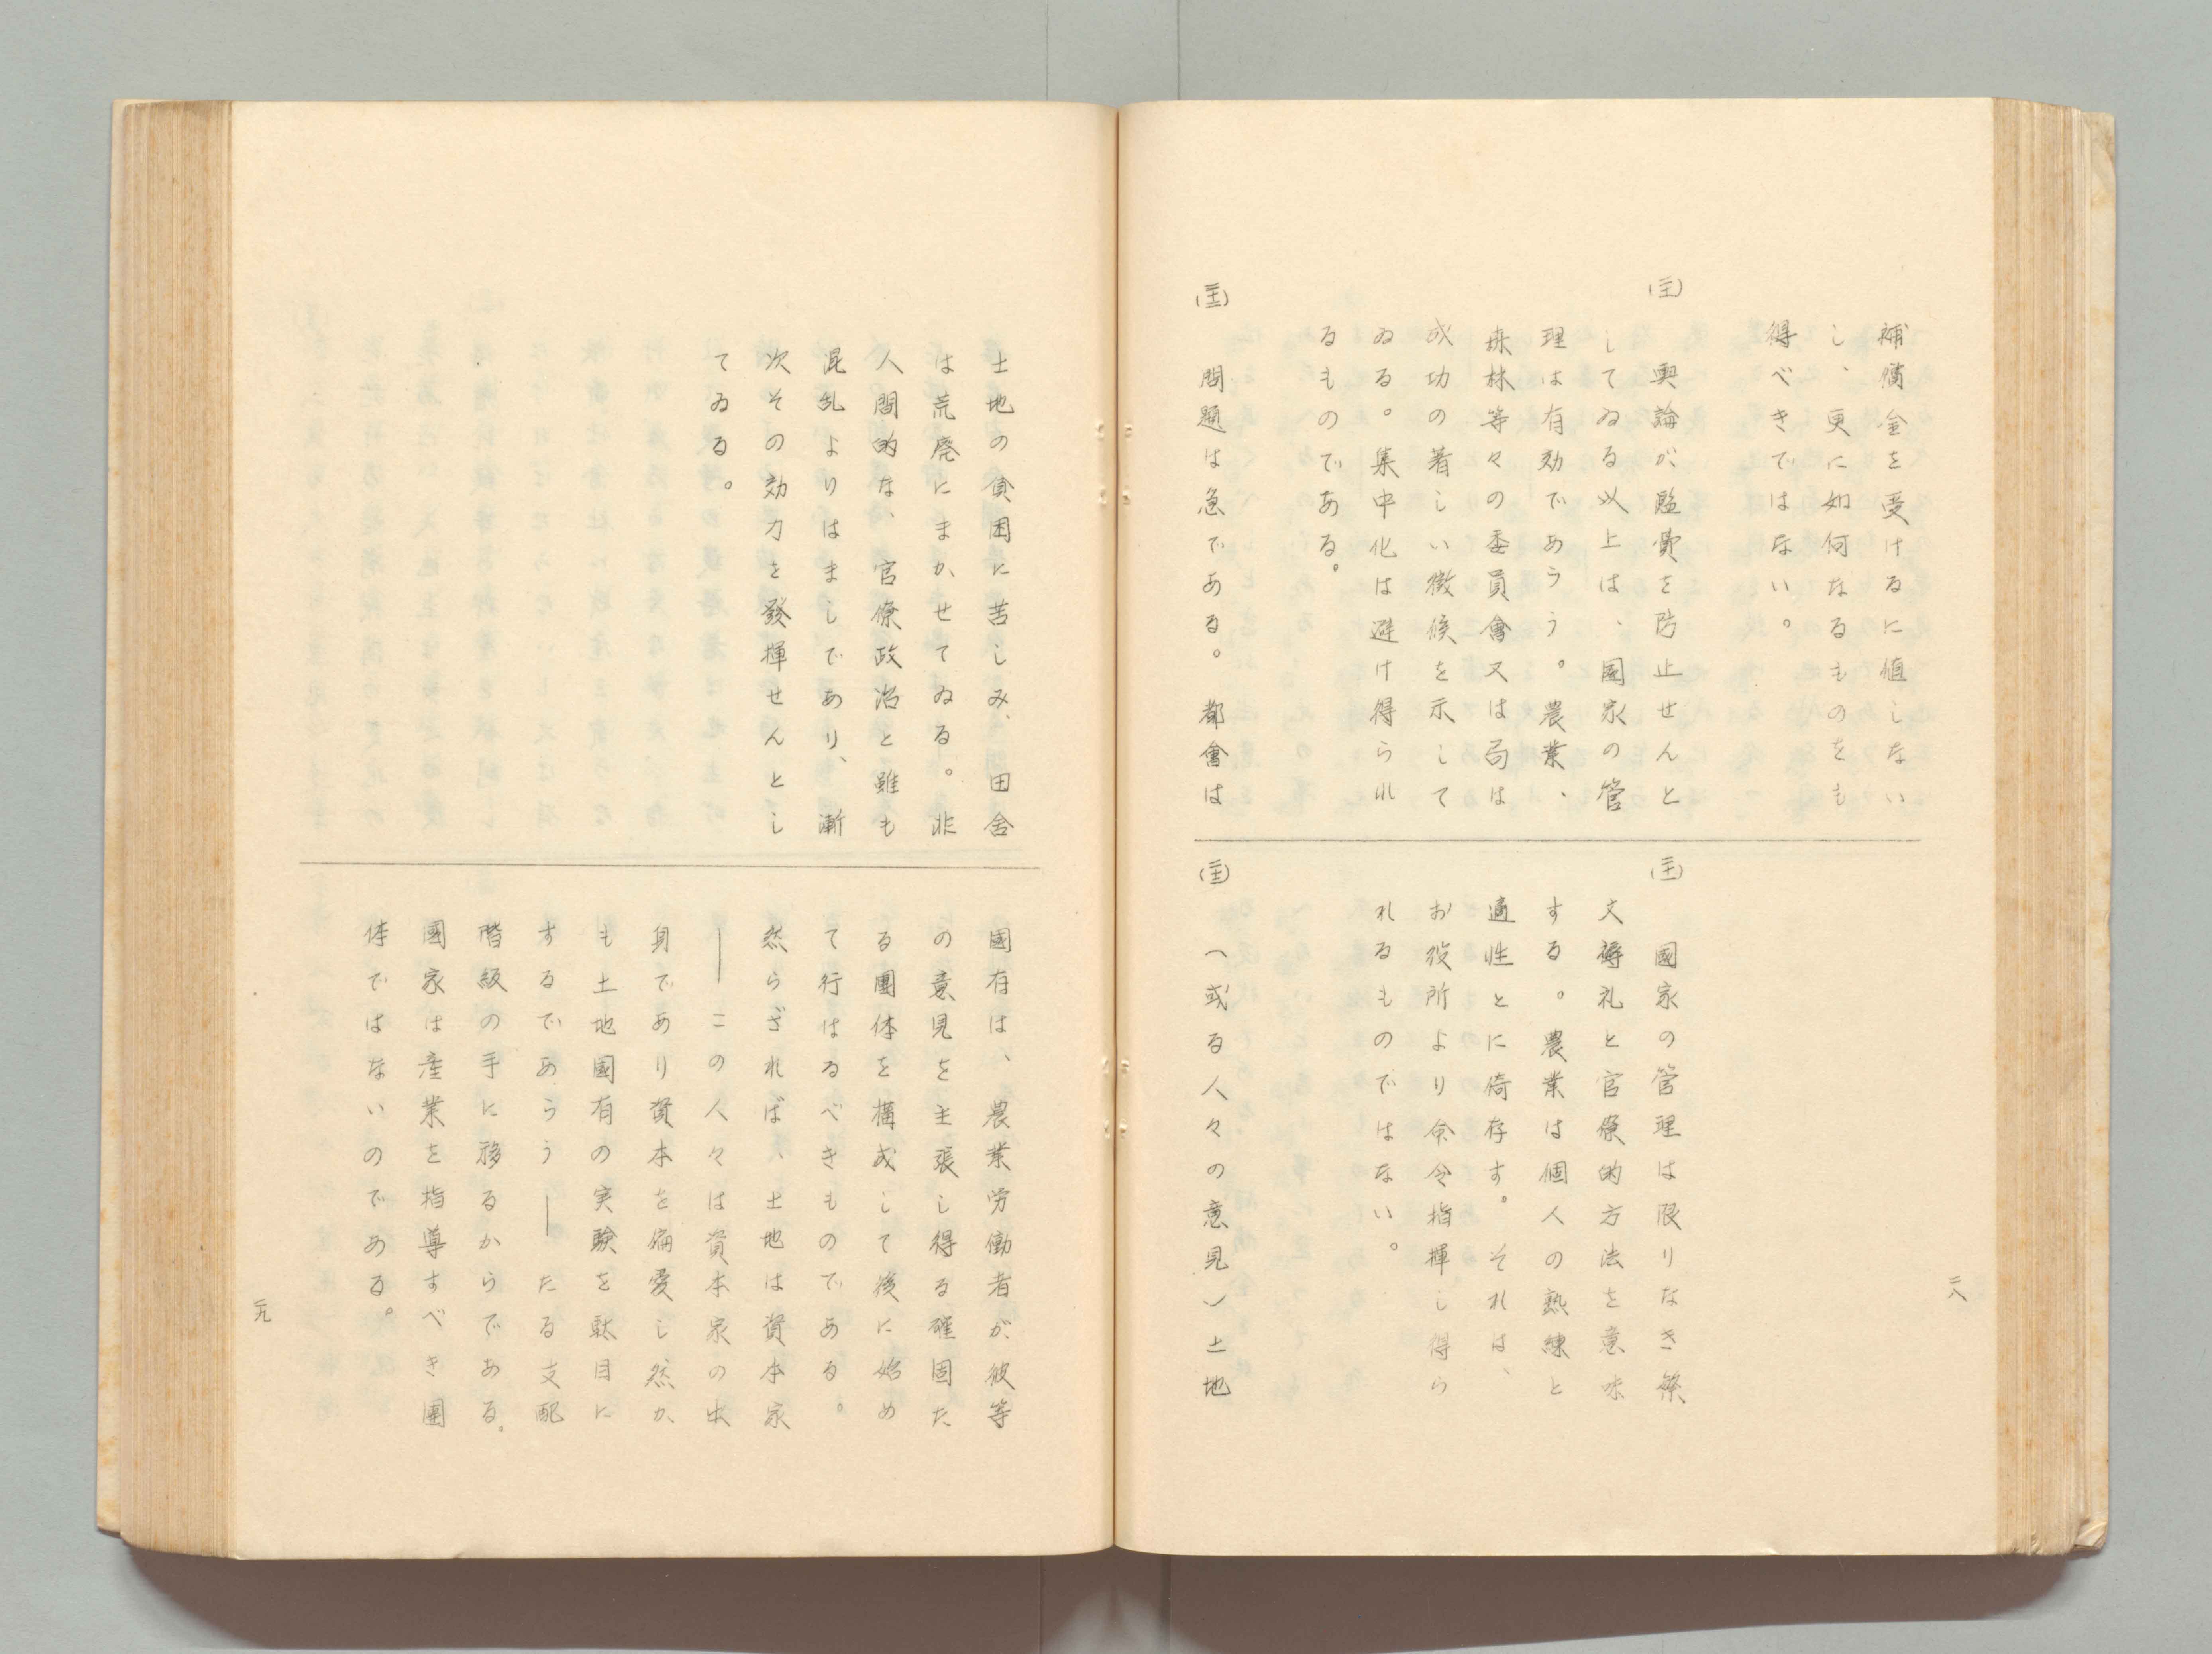 補償金を受けるに値しない
し、更に如何なるものをも
得べきではない。
輿論が臨費を防止せんと
してゐる以上は、国家の管
理は有効であらう。農業、
森林等々の委員會又は局は
成功の著しい徴候を示して
ゐる。集中化は避け得られ
るものである。
問題は急である。都會は
國家の管理は限りなき繁
文縟礼と官僚的方法を意味
する。農業は個人の熟練と
適性とに倚存す。それは、
お役所より命令指揮し得ら
れるものではない。
（或る人々の意見）土地
土地の貧困に苦しみ、田舎
は荒廃にまかせてゐる。非
人間的な、官僚政治と雖も
混乱よりはましであり、漸
次その効力を發揮せんとし
てゐる。
國有は、農業労働者が、彼等
の意見を主張し得る確固た
る團体を構成して後に始め
て行はるべきものである。
然らざれば、土地は資本家
――この人々は資本家の出
身であり資本を偏愛し、然か
も土地國有の実験を駄目に
するであらう――たる支配
階級の手に移るからである。
國家は産業を指導すべき團
体ではないのである。